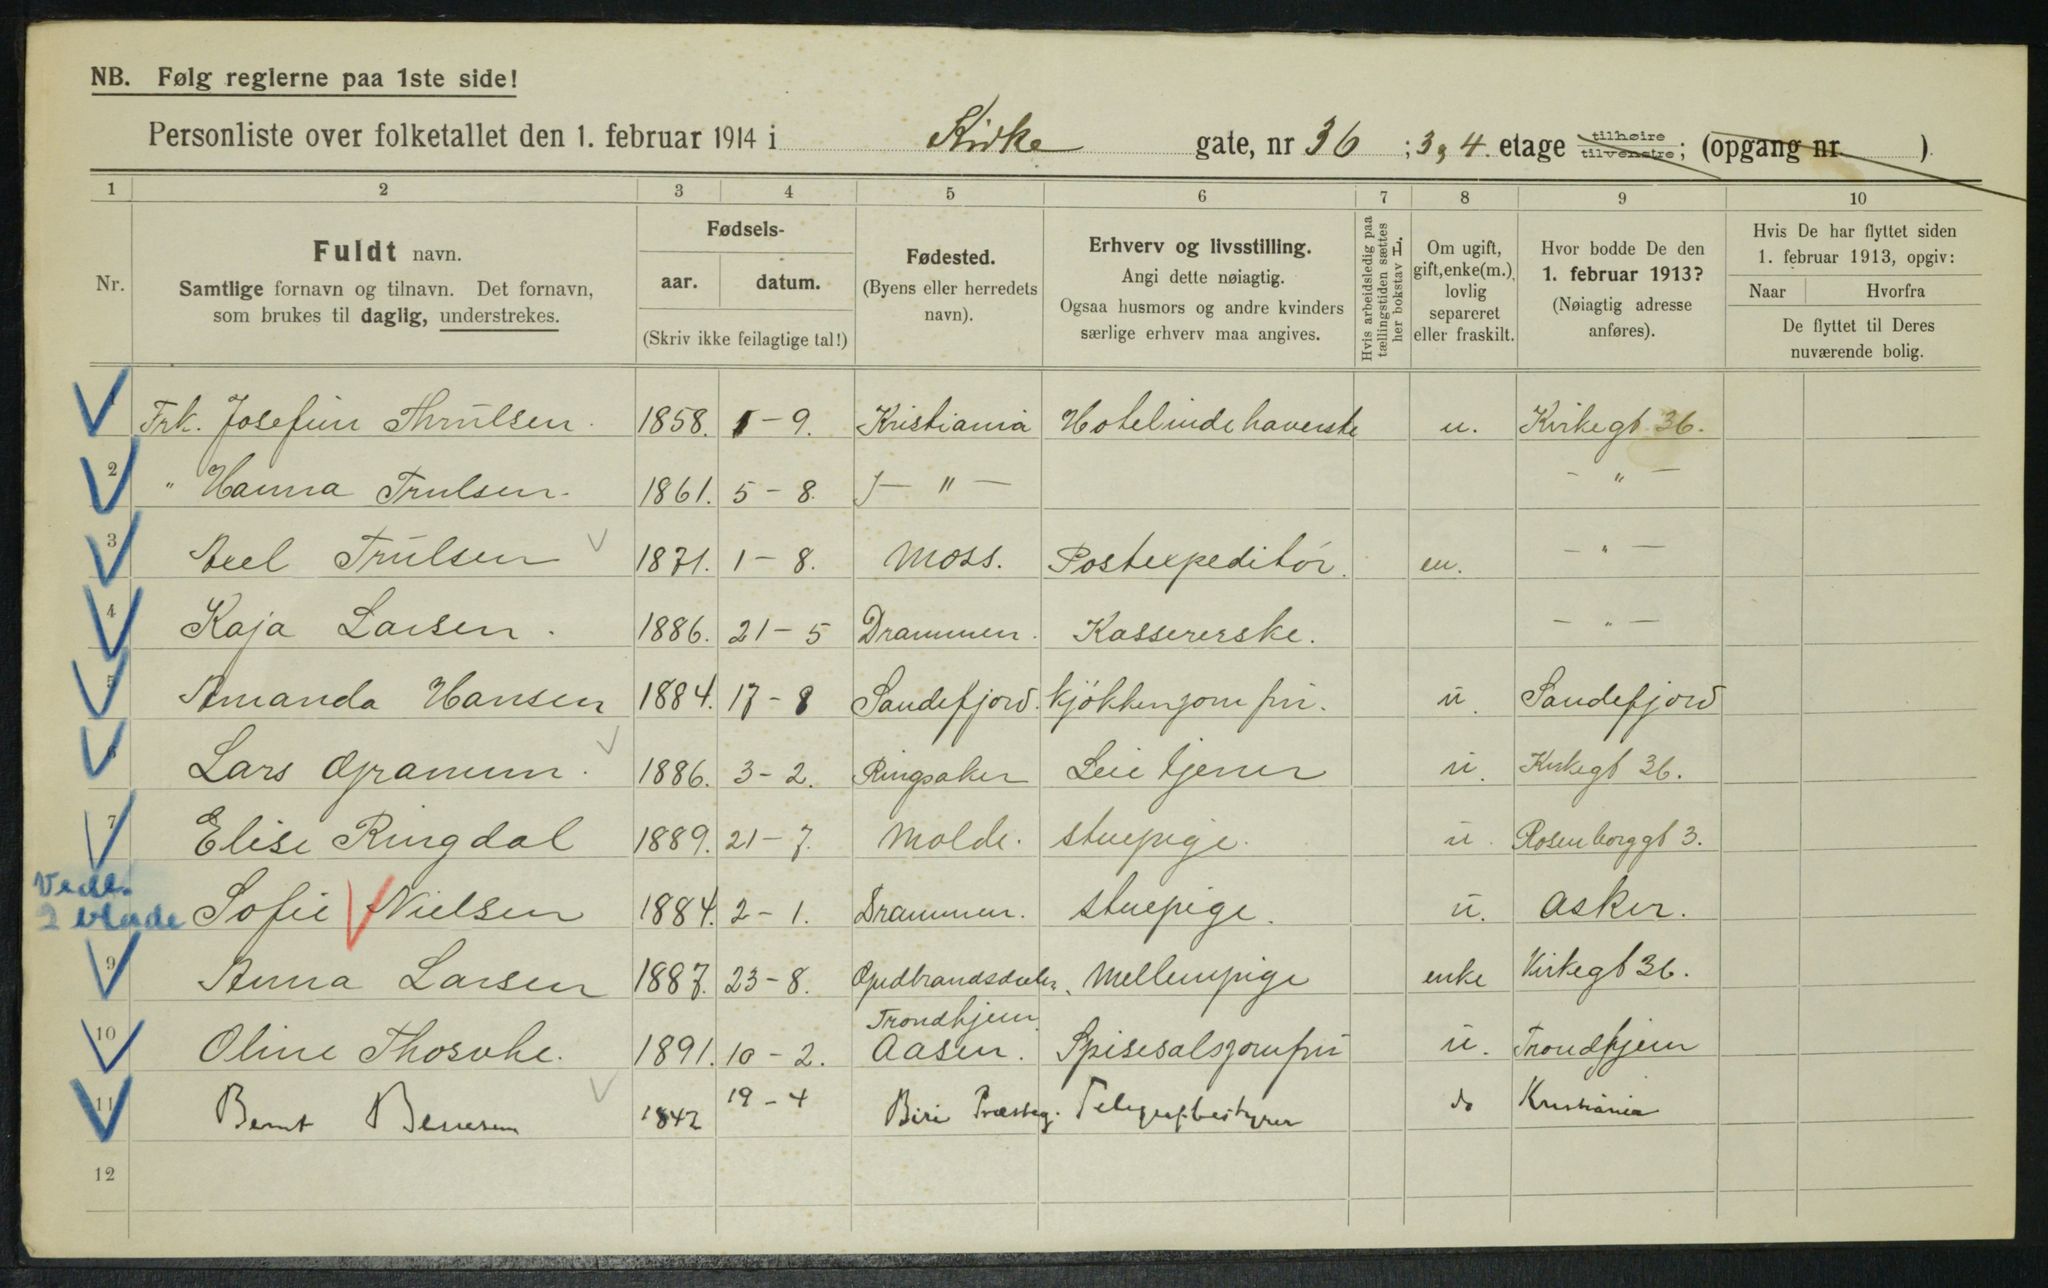 NB. Følg reglerne paa 1ste side!
Personliste over folketallet den 1. februar 1914 i Kirke gate, nr 36 ; 3, 4. etage tilhøire tilvenstre; (opgang nr )
1 2 3 4 5 6 7 8 9 10
Nr.
Fuldt navn.
Samtlige fornavn og tilnavn. Det fornavn,
som brukes til daglig, understrekes.
Fødsels-
aar. datum.
(Skriv ikke feilagtige tal!)
Fødested.
(Byens eller herredets
navn).
Erhverv og livsstilling.
Angi dette nøiagtig.
Ogsaa husmors og andre kvinders
særlige erhverv maa angives.
Hvis arbeidsledig paa
tællingstiden sættes
her bokstav L.
Om ugift,
gift, enke(m.),
lovlig
separeret
eller fraskilt.
Hvor bodde De den
1. februar 1913?
(Nøiagtig adresse
anføres).
Hvis De har flyttet siden
1. februar 1913, opgiv:
Naar Hvorfra
De flyttet til Deres
nuværende bolig.
Frk. Josefin Thrulsen. 1858. 1-9. Kristiania Hotelindehaverske u. Kirkegt 36.
2 " Hanna Trulsen. 1861. 5-8. - " - - " -
3 Axel Trulsen 1871. 1-8. Moss. Postexpeditør. en. - " -
4 Kaja Larsen. 1886. 21-5 Drammen. Kassererske. - " -
5 Amanda Hansen 1884. 17-8 Sandefjord. kjøkkenjomfru. u. Sandefjord
6 Lars Gramum. 1886. 3-2. Ringsaker Leietjener u. Kirkegt 36.
7 Elise Ringdal 1889. 21-7. Molde. stuepige. u. Rosenborggt 3.
Vedl.
2 blade Sofie Nielsen 1884. 2-1. Drammen. stuepige. u. Asker.
9 Anna Larsen 1887. 23-8. Gudbrandsdalen. Mellempige enke Kirkegt 36.
10 Oline Thosvhe. 1891. 10-2. Trondhjem Aasen. Spisesalsjomfru u. Trondhjem
11 Bernt Bernsen 1842 19-4 Biri Præsteg. Telegrafbestyrer do Kristiania
12